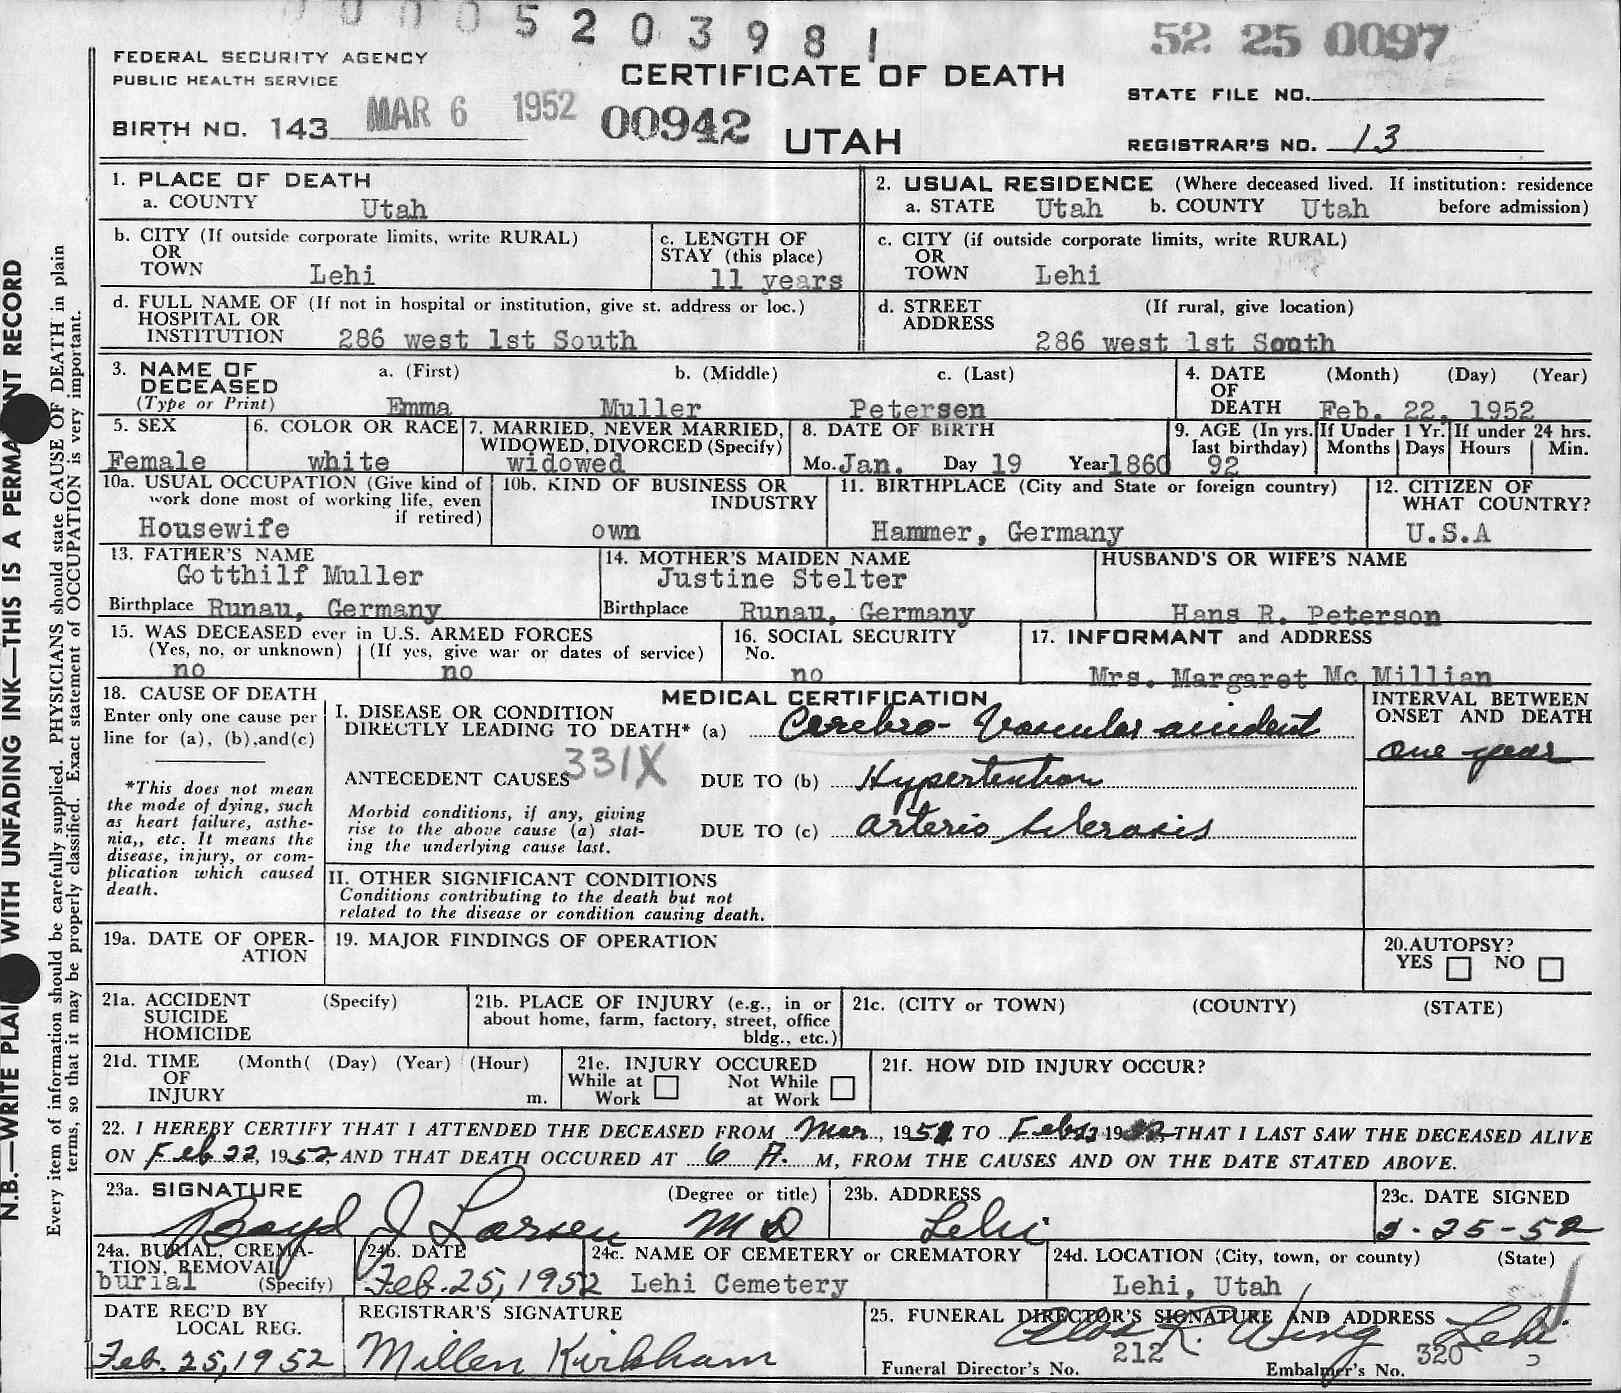 0005203981
52 25 0097
FEDERAL SECURITY AGENCY
PUBLIC HEALTH SERVICE
CERTIFICATE OF DEATH
STATE FILE NO.
BIRTH NO. 143
MAR 6 1952
00942
UTAH
REGISTRAR'S NO. 13
N.B.—WRITE PLAI WITH UNFADING INK—THIS IS A PERMA NT RECORD
Every item of information should be carefully supplied. PHYSICIANS should state CAUSE OF DEATH in plain
terms, so that it may be properly classified. Exact statement of OCCUPATION is very important.
1. PLACE OF DEATH
a. COUNTY Utah
2. USUAL RESIDENCE (Where deceased lived. If institution: residence
a. STATE Utah b. COUNTY Utah before admission)
b. CITY (If outside corporate limits, write RURAL)
OR
TOWN Lehi
c. LENGTH OF
STAY (this place)
11 years
c. CITY (if outside corporate limits, write RURAL)
OR
TOWN Lehi
d. FULL NAME OF (If not in hospital or institution, give st. address or loc.)
HOSPITAL OR
INSTITUTION 286 west 1st South
d. STREET (If rural, give location)
ADDRESS
286 west 1st South
3. NAME OF a. (First) b. (Middle) c. (Last)
DECEASED
(Type or Print) Emma Muller Petersen
4. DATE (Month) (Day) (Year)
OF
DEATH Feb. 22, 1952
5. SEX
Female
6. COLOR OR RACE
white
7. MARRIED, NEVER MARRIED,
WIDOWED, DIVORCED (Specify)
widowed
8. DATE OF BIRTH
Mo. Jan. Day 19 Year 1860
9. AGE (In yrs.
last birthday)
92
If Under 1 Yr.
Months Days
If under 24 hrs.
Hours Min.
10a. USUAL OCCUPATION (Give kind of
work done most of working life, even
if retired)
Housewife
10b. KIND OF BUSINESS OR
INDUSTRY
own
11. BIRTHPLACE (City and State or foreign country)
Hammer, Germany
12. CITIZEN OF
WHAT COUNTRY?
U.S.A
13. FATHER'S NAME
Gotthilf Muller
Birthplace Runau, Germany
14. MOTHER'S MAIDEN NAME
Justine Stelter
Birthplace Runau, Germany
HUSBAND'S OR WIFE'S NAME
Hans R. Peterson
15. WAS DECEASED ever in U.S. ARMED FORCES
(Yes, no, or unknown) (If yes, give war or dates of service)
no no
16. SOCIAL SECURITY
No.
no
17. INFORMANT and ADDRESS
Mrs. Margaret Mc Millian
18. CAUSE OF DEATH
Enter only one cause per
line for (a), (b),and(c)
*This does not mean
the mode of dying, such
as heart failure, asthe-
nia,, etc. It means the
disease, injury, or com-
plication which caused
death.
MEDICAL CERTIFICATION
I. DISEASE OR CONDITION
DIRECTLY LEADING TO DEATH* (a) Cerebro-Vascular accident
ANTECEDENT CAUSES 331X DUE TO (b) Hypertention
Morbid conditions, if any, giving
rise to the above cause (a) stat-
ing the underlying cause last.
DUE TO (c) arterio sclerosis
INTERVAL BETWEEN
ONSET AND DEATH
one year
II. OTHER SIGNIFICANT CONDITIONS
Conditions contributing to the death but not
related to the disease or condition causing death.
19a. DATE OF OPER-
ATION
19. MAJOR FINDINGS OF OPERATION
20. AUTOPSY?
YES NO
21a. ACCIDENT (Specify)
SUICIDE
HOMICIDE
21b. PLACE OF INJURY (e.g., in or
about home, farm, factory, street, office
bldg., etc.)
21c. (CITY or TOWN) (COUNTY) (STATE)
21d. TIME (Month( (Day) (Year) (Hour)
OF
INJURY m.
21e. INJURY OCCURED
While at Work
Not While at Work
21f. HOW DID INJURY OCCUR?
22. I HEREBY CERTIFY THAT I ATTENDED THE DECEASED FROM Mar, 1951 TO Feb 19 THAT I LAST SAW THE DECEASED ALIVE
ON Feb 22, 1952, AND THAT DEATH OCCURED AT 6 A. M, FROM THE CAUSES AND ON THE DATE STATED ABOVE.
23a. SIGNATURE (Degree or title)
Boyd J Larsen MD
23b. ADDRESS
Lehi
23c. DATE SIGNED
2-25-52
24a. BURIAL, CREMA-
TION, REMOVAL
burial (Specify)
24b. DATE
Feb. 25, 1952
24c. NAME OF CEMETERY or CREMATORY
Lehi Cemetery
24d. LOCATION (City, town, or county) (State)
Lehi, Utah
DATE REC'D BY
LOCAL REG.
Feb. 25, 1952
REGISTRAR'S SIGNATURE
Millen Kirkham
25. FUNERAL DIRECTOR'S SIGNATURE AND ADDRESS
R. Wing Lehi
Funeral Director's No. 212 Embalmer's No. 320